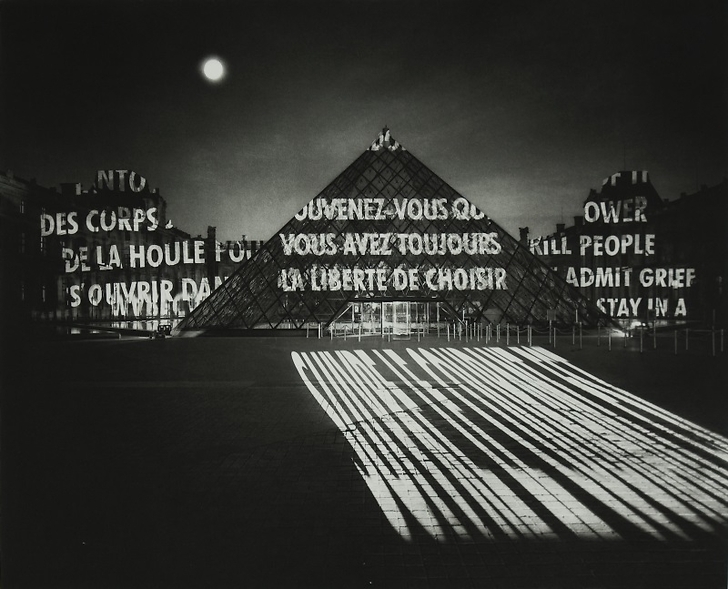 ANTO
DES CORPS
DE LA HOULE POU
S'OUVRIR DAN
OUVENEZ-VOUS QU
VOUS AVEZ TOUJOURS
LA LIBERTÉ DE CHOISIR
OWER
KILL PEOPLE
ADMIT GRIEF
STAY IN A